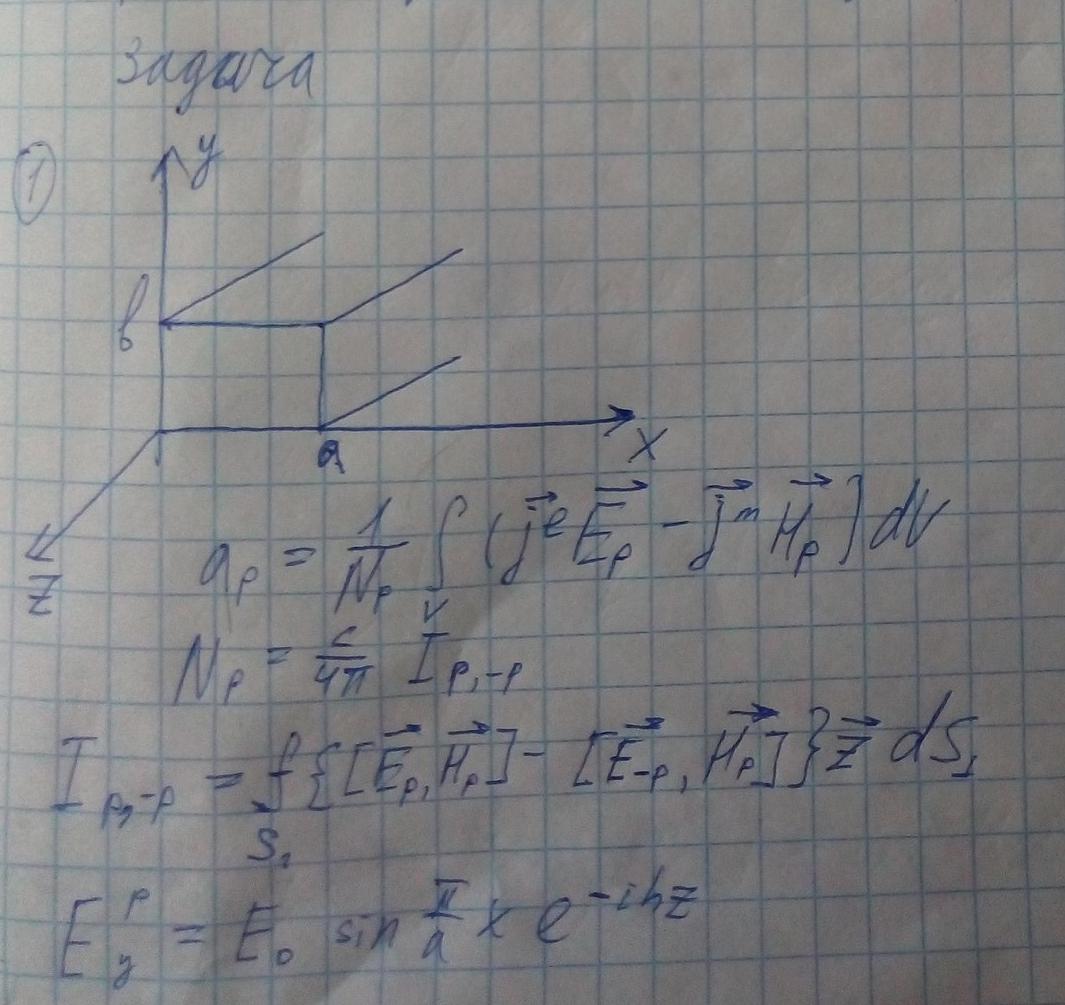 Задача
①
y
b
a
x
z
a_p = \frac{1}{N_p} \int_V (\vec{j}^e \vec{E}_p - \vec{j}^m \vec{H}_p) dV
N_p = \frac{c}{4\pi} I_{p,-p}
I_{p,-p} = \int_{S_1} \{[\vec{E}_p, \vec{H}_p] - [\vec{E}_{-p}, \vec{H}_p]\} \vec{z} dS_1
E_y^p = E_0 sin \frac{\pi}{a} x e^{-ihz}